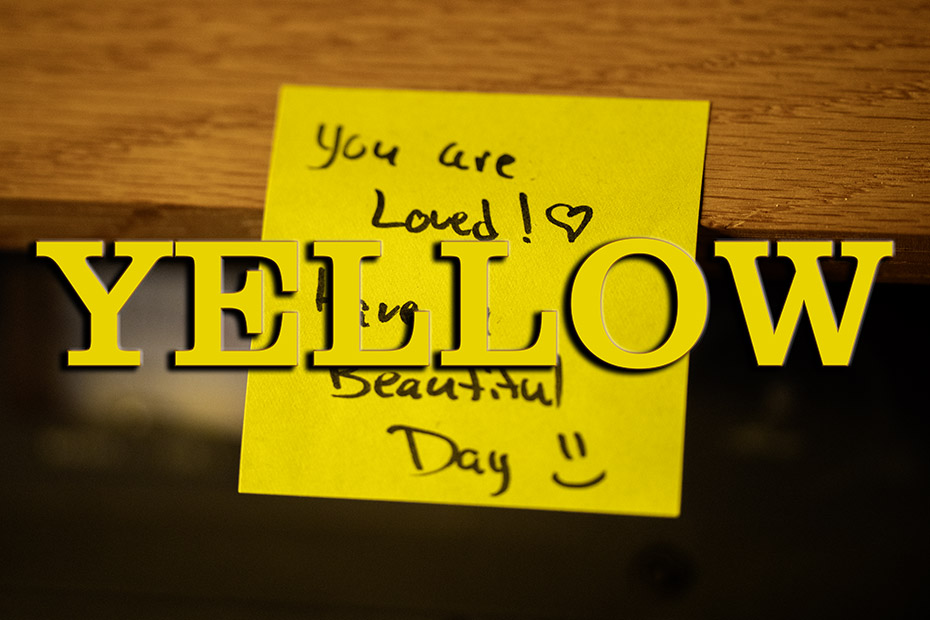 You are
Loved! ♡
YELLOW
Have a
Beautiful
Day